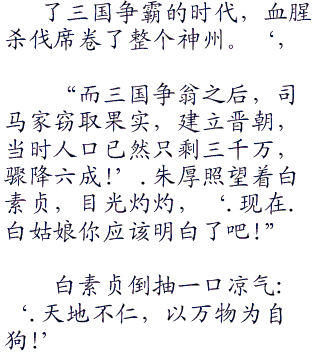 了三国争霸的时代，血腥
杀伐席卷了整个神州。‘，
“而三国争翁之后，司
马家窃取果实，建立晋朝，
当时人口已然只剩三千万，
骤降六成!’.朱厚照望着白
素贞，目光灼灼，‘.现在.
白姑娘你应该明白了吧!”
白素贞倒抽一口凉气:
‘.天地不仁，以万物为自
狗!’